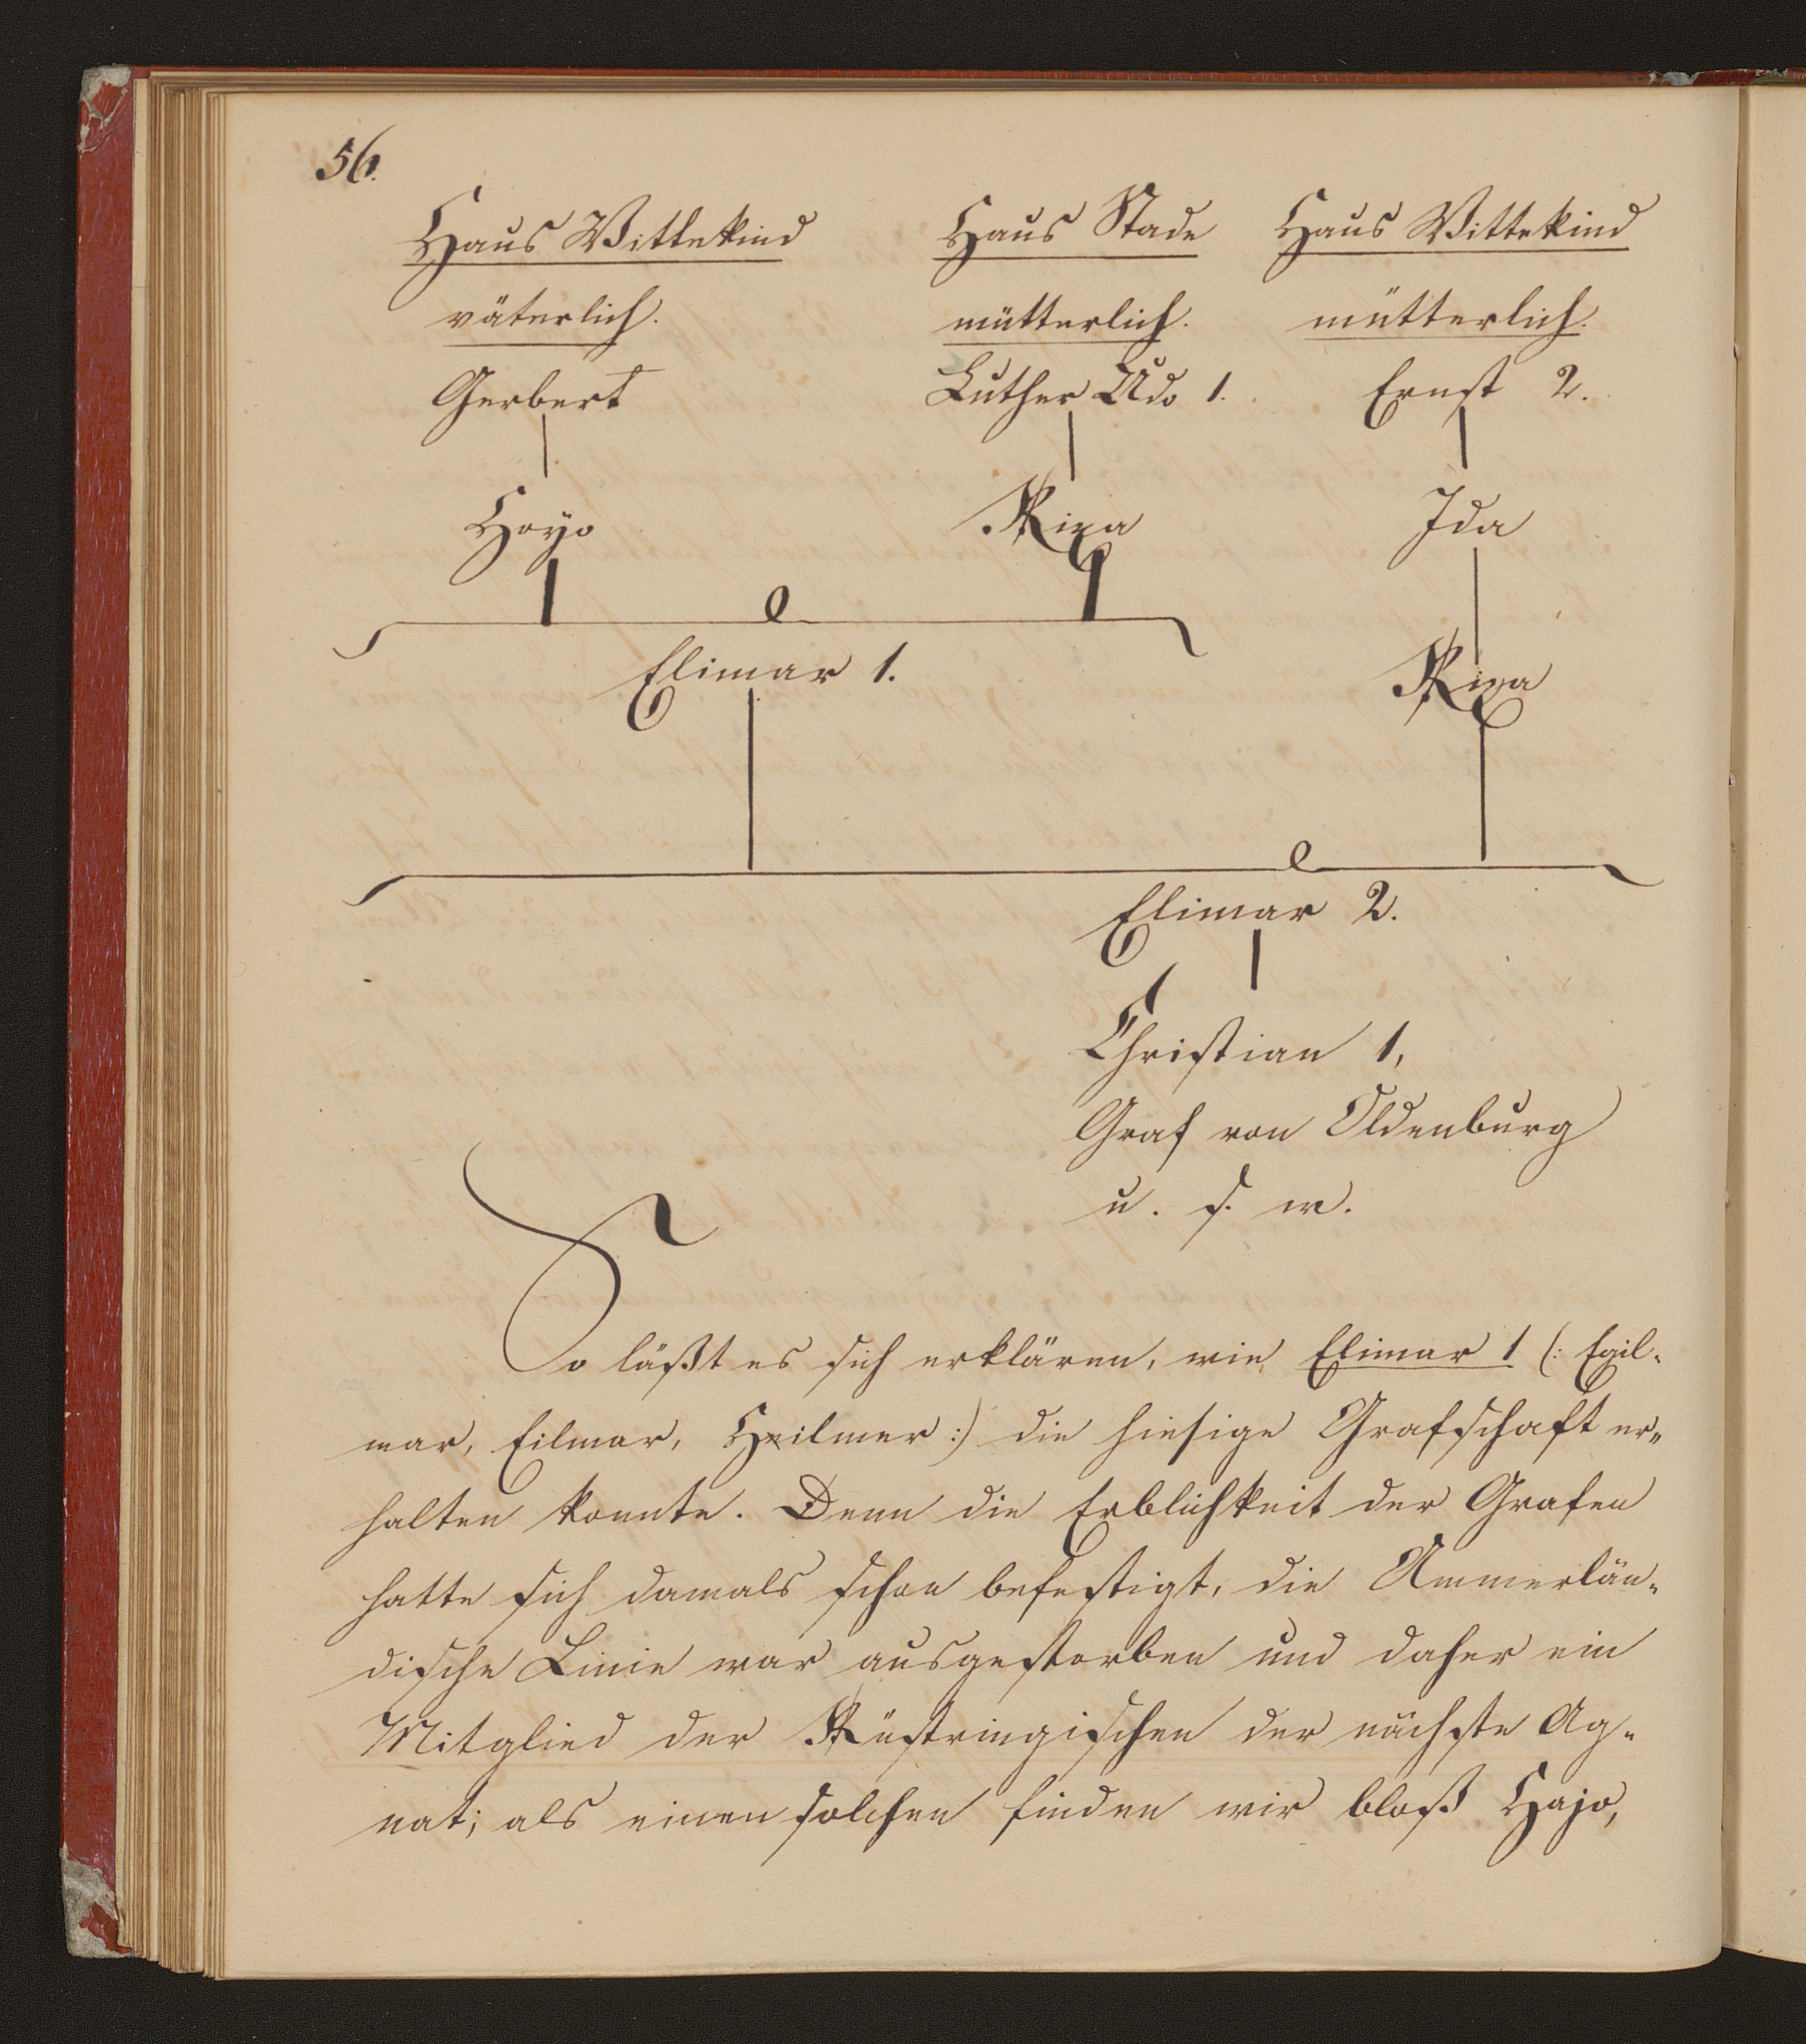 56.
Haus Wittekind Haus Stade Haus Wittekind
väterlich. mütterlich. mütterlich.
Gerbert Luther Udo 1. Ernst 2.
Hoyo Rixa Ida
Elimar 1. Rixa
Elimar 2.
Christian 1,
Graf von Oldenburg
u. s. w.
So läßt es sich erklären, wie Elimar 1 (: Egil-
mar, Eilmar, Heilmer :) die hiesige Grafschaft er-
halten konnte. Denn die Erblichkeit der Grafen
hatte sich damals schon befestigt, die Ammerlän-
dische Linie war ausgestorben und daher ein
Mitglied der Rüstringischen der nächste Ag-
nat; als einen solchen finden wir bloß Hajo,